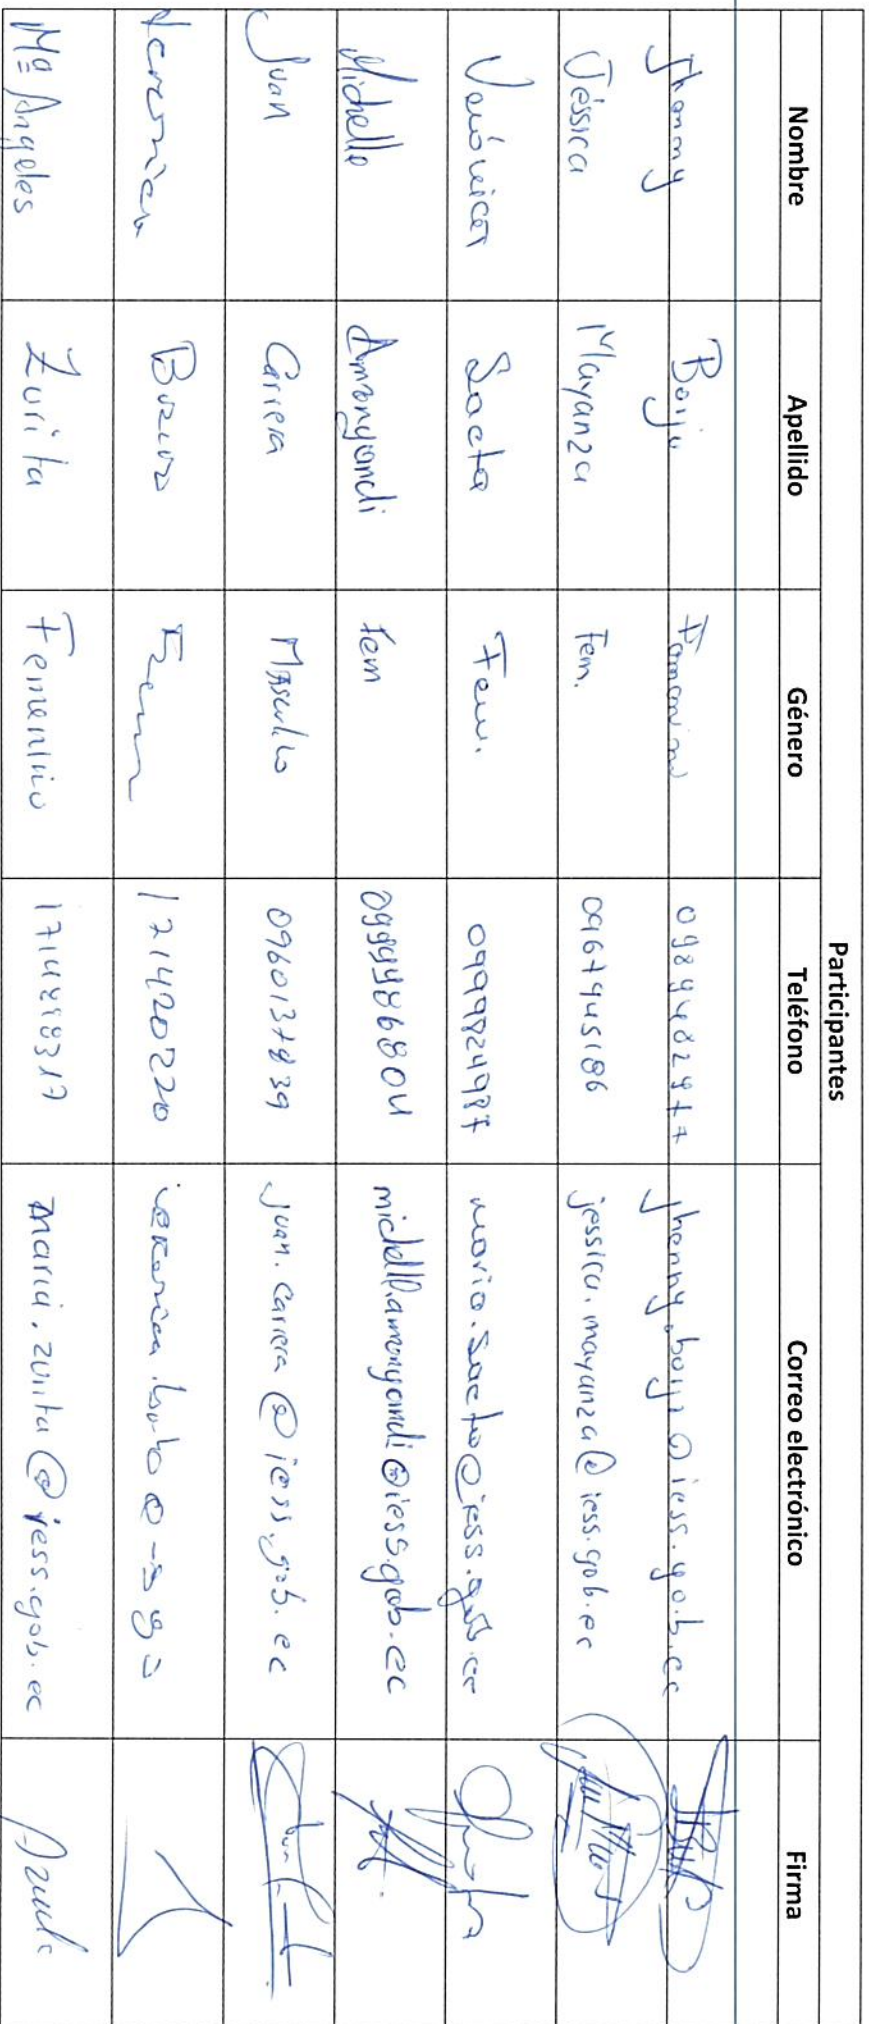 Participantes
Nombre Apellido Género Teléfono Correo electrónico Firma
Jhenny Borja Femenino 0989482477 jhenny.borja@iess.gob.ec
Jéssica Mayanza Fem. 0967945186 jessica.mayanza@iess.gob.ec
Verónica Sacta Fem. 0999824987 maria.sacta@iess.gob.ec
Michelle Amanyandi Fem 0999986804 michelle.amanyandi@iess.gob.ec
Juan Carrera Masculino 0960137839 juan.carrera@iess.gob.ec
Verónica Fem 171420220
Mª Angeles Zurita Femenino 1714288317 maria.zurita@iess.gob.ec